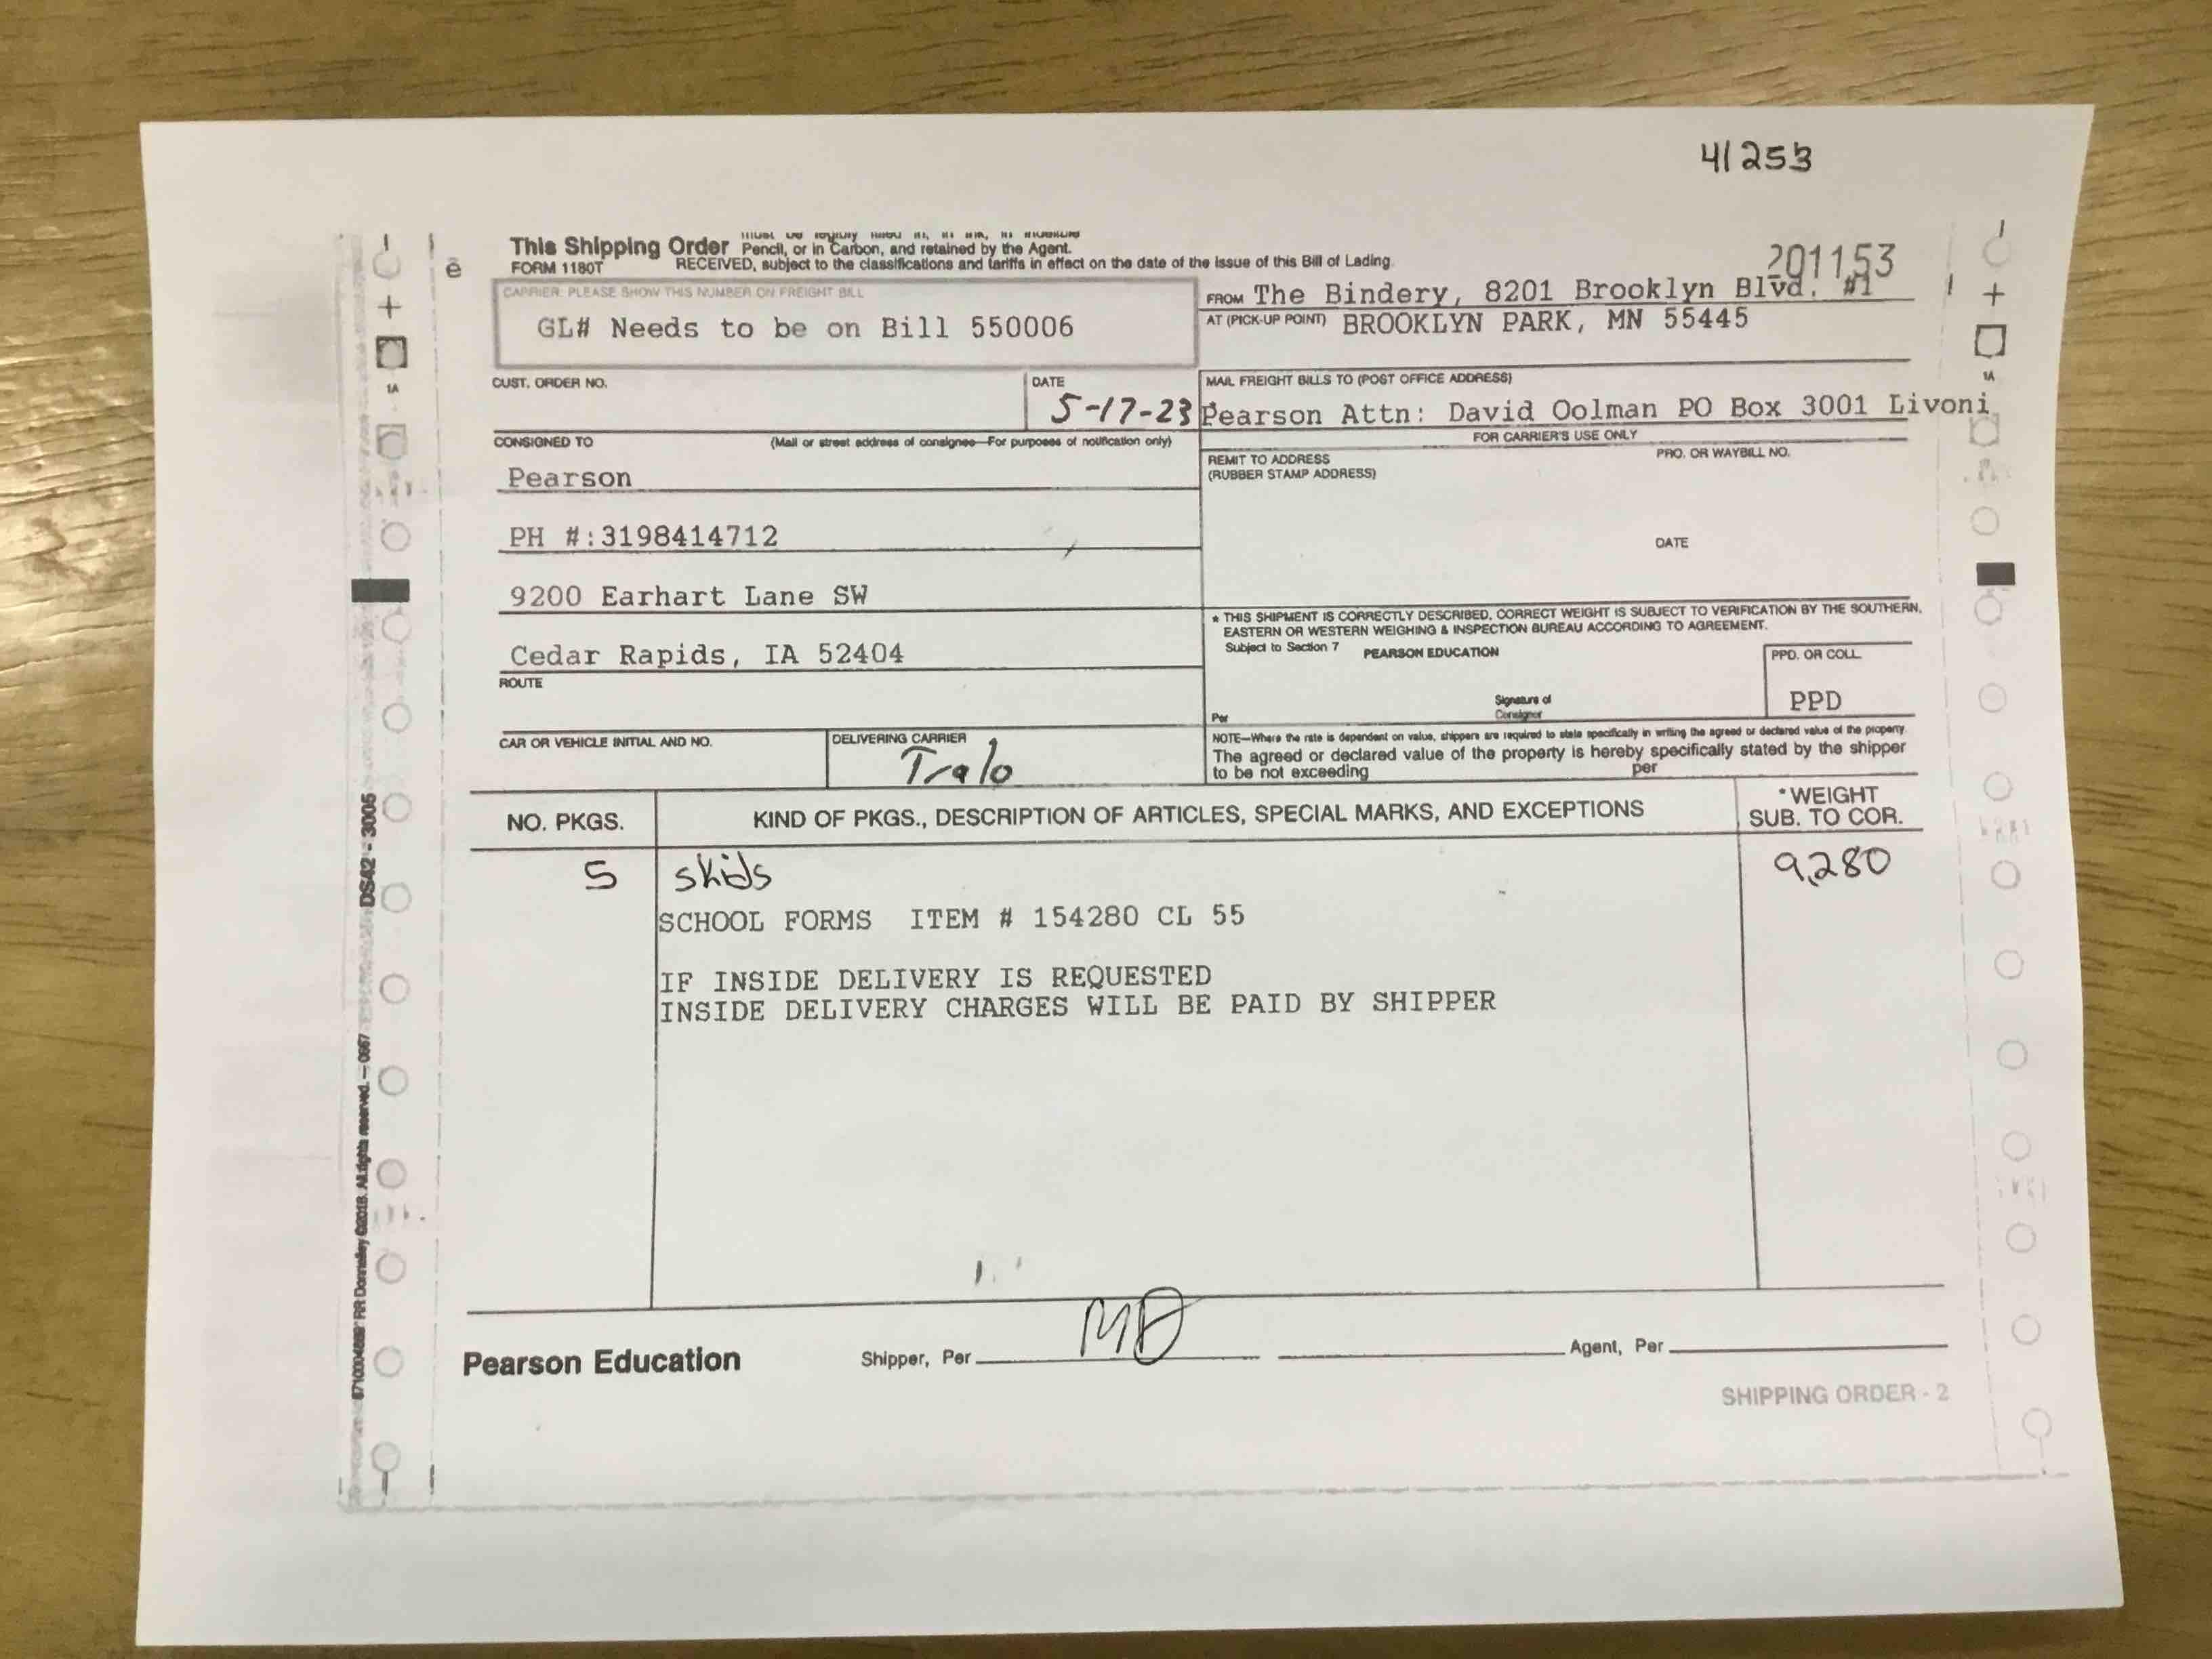 41253
This Shipping Order
Pencil, or in Carbon, and retained by the Agent.
FORM 1180T
RECEIVED, subject to the classifications and tariffs in effect on the date of the issue of this Bill of Lading.
201153
CARRIER: PLEASE SHOW THIS NUMBER ON FREIGHT BILL
GL# Needs to be on Bill 550006
FROM The Bindery, 8201 Brooklyn Blvd. #1
AT (PICK-UP POINT) BROOKLYN PARK, MN 55445
CUST. ORDER NO.
DATE
5-17-23
MAIL FREIGHT BILLS TO (POST OFFICE ADDRESS)
Pearson Attn: David Oolman PO Box 3001 Livoni
CONSIGNED TO
(Mail or street address of consignee—For purposes of notification only)
FOR CARRIER'S USE ONLY
Pearson
REMIT TO ADDRESS
(RUBBER STAMP ADDRESS)
PRO. OR WAYBILL NO.
PH #:3198414712
DATE
9200 Earhart Lane SW
Cedar Rapids, IA 52404
* THIS SHIPMENT IS CORRECTLY DESCRIBED, CORRECT WEIGHT IS SUBJECT TO VERIFICATION BY THE SOUTHERN,
EASTERN OR WESTERN WEIGHING & INSPECTION BUREAU ACCORDING TO AGREEMENT.
Subject to Section 7 PEARSON EDUCATION
PPD. OR COLL.
PPD
Signature of
Consignor
Per
ROUTE
CAR OR VEHICLE INITIAL AND NO.
DELIVERING CARRIER
Tralo
NOTE—Where the rate is dependent on value, shippers are required to state specifically in writing the agreed or declared value of the property.
The agreed or declared value of the property is hereby specifically stated by the shipper
to be not exceeding per
NO. PKGS.
KIND OF PKGS., DESCRIPTION OF ARTICLES, SPECIAL MARKS, AND EXCEPTIONS
*WEIGHT
SUB. TO COR.
5 skids 9,280
SCHOOL FORMS ITEM # 154280 CL 55
IF INSIDE DELIVERY IS REQUESTED
INSIDE DELIVERY CHARGES WILL BE PAID BY SHIPPER
Pearson Education
Shipper, Per MD
Agent, Per
SHIPPING ORDER - 2
DS42 - 3005
RR Donnelley ©2018. All rights reserved. — 0667
1A
1A